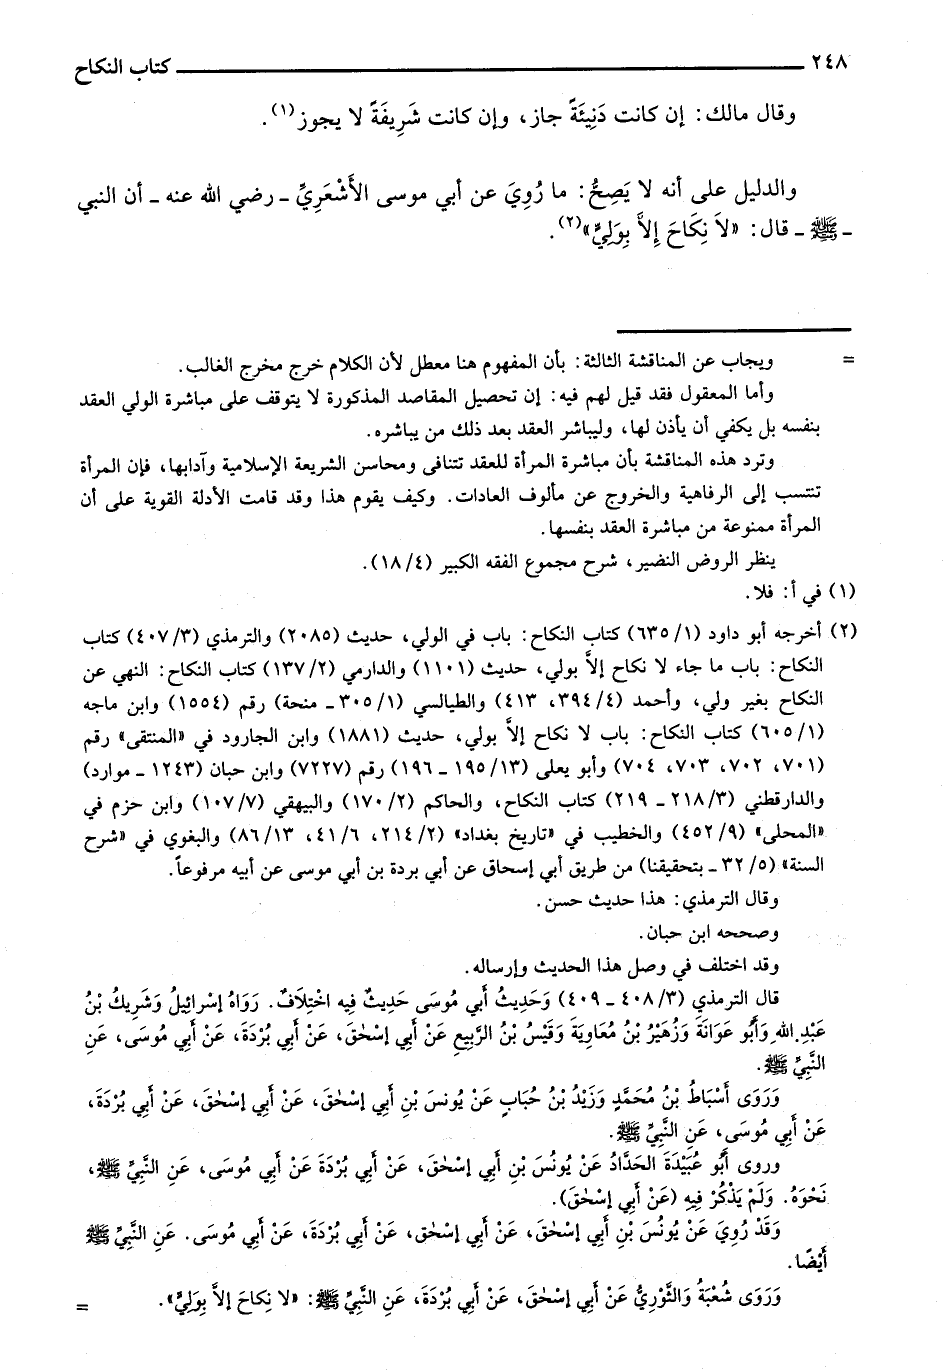 ٢٤٨ ــــــــــــــــــــ كتاب النكاح
وقال مالك: إن كانت دَنِيئَةً جاز، وإن كانت شَرِيفَةً لا يجوز(١).
والدليل على أنه لا يَصِحُّ: ما رُوِيَ عن أبي موسى الأَشْعَرِيِّ ـ رضي الله عنه ـ أن النبي
ـ ﷺ ـ قال: «لاَ نِكَاحَ إِلاَّ بِوَلِيٍّ»(٢).
= ويجاب عن المناقشة الثالثة: بأن المفهوم هنا معطل لأن الكلام خرج مخرج الغالب.
وأما المعقول فقد قيل لهم فيه: إن تحصيل المقاصد المذكورة لا يتوقف على مباشرة الولي العقد
بنفسه بل يكفي أن يأذن لها، وليباشر العقد بعد ذلك من يباشره.
وترد هذه المناقشة بأن مباشرة المرأة للعقد تتنافى ومحاسن الشريعة الإسلامية وآدابها، فإن المرأة
تنتسب إلى الرفاهية والخروج عن مألوف العادات. وكيف يقوم هذا وقد قامت الأدلة القوية على أن
المرأة ممنوعة من مباشرة العقد بنفسها.
ينظر الروض النضير، شرح مجموع الفقه الكبير (١٨/٤).
(١) في أ: فلا.
(٢) أخرجه أبو داود (٦٣٥/١) كتاب النكاح: باب في الولي، حديث (٢٠٨٥) والترمذي (٤٠٧/٣) كتاب
النكاح: باب ما جاء لا نكاح إلاَّ بولي، حديث (١١٠١) والدارمي (١٣٧/٢) كتاب النكاح: النهي عن
النكاح بغير ولي، وأحمد (٣٩٤/٤، ٤١٣) والطيالسي (٣٠٥/١ ـ منحة) رقم (١٥٥٤) وابن ماجه
(٦٠٥/١) كتاب النكاح: باب لا نكاح إلاَّ بولي، حديث (١٨٨١) وابن الجارود في «المنتقى» رقم
(٧٠١، ٧٠٢، ٧٠٣، ٧٠٤) وأبو يعلى (١٩٥/١٣ ـ ١٩٦) رقم (٧٢٢٧) وابن حبان (١٢٤٣ ـ موارد)
والدارقطني (٢١٨/٣ ـ ٢١٩) كتاب النكاح، والحاكم (١٧٠/٢) والبيهقي (١٠٧/٧) وابن حزم في
«المحلى» (٤٥٢/٩) والخطيب في «تاريخ بغداد» (٢١٤/٢، ٤١/٦، ٨٦/١٣) والبغوي في «شرح
السنة» (٣٢/٥ ـ بتحقيقنا) من طريق أبي إسحاق عن أبي بردة بن أبي موسى عن أبيه مرفوعاً.
وقال الترمذي: هذا حديث حسن.
وصححه ابن حبان.
وقد اختلف في وصل هذا الحديث وإرساله.
قال الترمذي (٤٠٨/٣ ـ ٤٠٩) وَحَدِيثُ أبي مُوسَى حَدِيثٌ فِيهِ اخْتِلَافٌ. رَوَاهُ إِسْرائِيلُ وَشَرِيكُ بْنُ
عَبْدِ الله وَأَبُو عَوَانَةَ وَزُهَيْرُ بْنُ مُعَاوِيَةَ وَقَيْسُ بْنُ الرَّبِيعِ عَنْ أَبِي إِسْحٰقَ، عَنْ أَبِي بُرْدَةَ، عَنْ أَبِي مُوسَى، عَنِ
النَّبِيِّ ﷺ.
وَرَوَى أَسْبَاطُ بْنُ مُحَمَّدٍ وَزَيْدُ بْنُ حُبَابٍ عَنْ يُونسَ بْنِ أَبِي إِسْحٰقَ، عَنْ أَبِي إِسْحٰقَ، عَنْ أَبِي بُرْدَةَ،
عَنْ أَبِي مُوسَى، عَنِ النَّبِيِّ ﷺ.
وروى أَبُو عُبَيْدَةَ الحَدَّادُ عَنْ يُونُسَ بْنِ أَبِي إِسْحٰقَ، عَنْ أَبِي بُرْدَةَ عَنْ أَبِي مُوسَى، عَنِ النَّبِيِّ ﷺ،
نَحْوَهُ. وَلَمْ يَذْكُرْ فِيهِ (عَنْ أَبِي إِسْحٰقَ).
وَقَدْ رُوِيَ عَنْ يُونُسَ بْنِ أَبِي إِسْحٰقَ، عَنْ أَبِي إِسْحٰق، عَنْ أَبِي بُرْدَةَ، عَنْ أَبِي مُوسَى. عَنِ النَّبِيِّ ﷺ
أَيْضًا.
وَرَوَى شُعْبَةُ وَالثَّوْرِيُّ عَنْ أَبِي إِسْحٰقَ، عَنْ أَبِي بُرْدَةَ، عَنِ النَّبِيِّ ﷺ: «لا نِكاحَ إلاَّ بِوَلِيٍّ». =